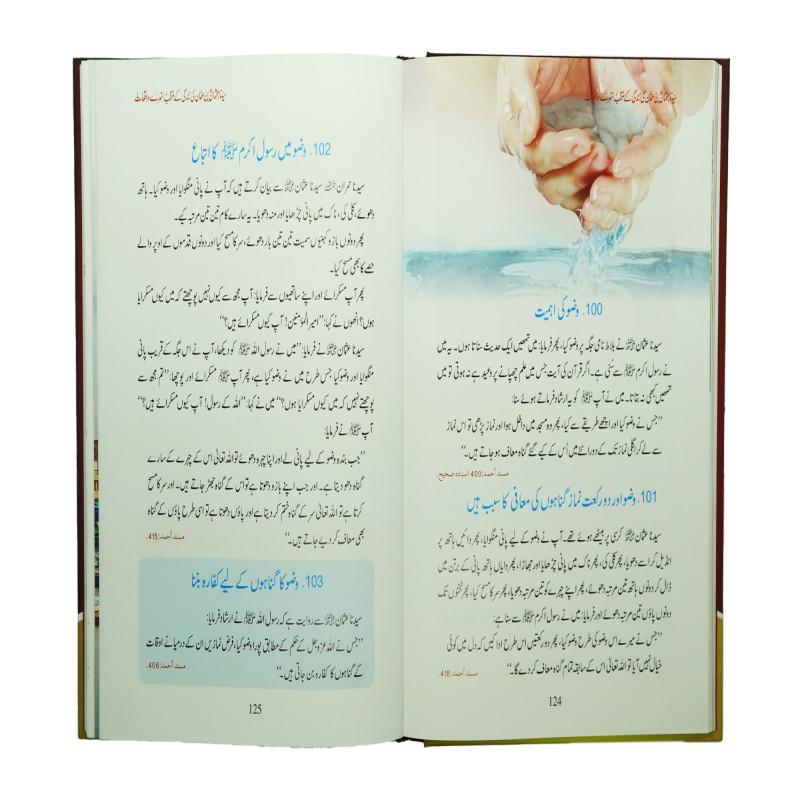 سیدنا عثمان بن عفان کی زندگی کے منتخب سنہرے واقعات
100. وضو کی اہمیت
سیدنا عثمان رضی اللہ عنہ نے بلاط نامی جگہ پر وضو کیا، پھر فرمایا: میں تمھیں ایک حدیث سناتا ہوں۔ یہ میں
نے رسول اکرم ﷺ سے سُنی ہے۔ اگر قرآن کی آیت جس میں علم چھپانے پر وعید ہے نہ ہوتی تو میں
تمھیں کبھی نہ بتاتا۔ میں نے آپ ﷺ کو یہ ارشاد فرماتے ہوئے سنا:
’’جس نے وضو کیا اور اچھے طریقے سے کیا، پھر وہ مسجد میں داخل ہوا اور نماز پڑھی تو اس نماز
سے لے کر اگلی نماز تک کے دورانیے میں اُس کے کیے گئے گناہ معاف ہو جاتے ہیں۔‘‘
مسند أحمد: 400 اسنادہ صحیح.
101. وضو اور دو رکعت نماز گناہوں کی معافی کا سبب ہیں
سیدنا عثمان رضی اللہ عنہ کرسی پر بیٹھے ہوئے تھے۔ آپ نے وضو کے لیے پانی منگوایا، پھر دائیں ہاتھ پر
انڈیل کر اسے دھویا، پھر کلی کی، پھر ناک میں پانی چڑھایا اور جھاڑا، پھر دایاں ہاتھ پانی کے برتن میں
ڈال کر دونوں ہاتھ تین مرتبہ دھوئے، پھر اپنے چہرے کو تین مرتبہ دھویا، پھر سر کا مسح کیا، پھر ٹخنوں تک
دونوں پاؤں تین مرتبہ دھوئے اور فرمایا: میں نے رسول اکرم ﷺ سے سنا ہے:
’’جس نے میرے اس وضو کی طرح وضو کیا، پھر دو رکعتیں اس طرح ادا کیں کہ دل میں کوئی
خیال نہیں آیا تو اللہ تعالیٰ اس کے سابقہ تمام گناہ معاف کر دے گا۔‘‘ مسند أحمد: 418.
124
سیدنا عثمان بن عفان کی زندگی کے منتخب سنہرے واقعات
102. وضو میں رسول اکرم ﷺ کا اتباع
سیدنا حمران رحمہ اللہ سیدنا عثمان رضی اللہ عنہ سے بیان کرتے ہیں کہ آپ نے پانی منگوایا اور وضو کیا۔ ہاتھ
دھوئے، کلی کی، ناک میں پانی چڑھایا اور منہ دھویا۔ یہ سارے کام تین تین مرتبہ کیے۔
پھر دونوں بازو کہنیوں سمیت تین تین بار دھوئے، سر کا مسح کیا اور دونوں قدموں کے اوپر والے
حصے کا بھی مسح کیا۔
پھر آپ مسکرائے اور اپنے ساتھیوں سے فرمایا: آپ مجھ سے کیوں نہیں پوچھتے کہ میں کیوں مسکرایا
ہوں؟ انھوں نے کہا: ’’امیر المؤمنین! آپ کیوں مسکرائے ہیں؟‘‘
سیدنا عثمان رضی اللہ عنہ نے فرمایا: ’’میں نے رسول اللہ ﷺ کو دیکھا، آپ نے اس جگہ کے قریب پانی
منگوایا اور وضو کیا جس طرح میں نے وضو کیا ہے، پھر آپ ﷺ مسکرائے اور پوچھا: ’’تم مجھ سے
پوچھتے نہیں کہ میں کیوں مسکرایا ہوں؟‘‘ میں نے کہا: ’’اللہ کے رسول! آپ کیوں مسکرائے ہیں؟‘‘
آپ ﷺ نے فرمایا:
’’جب بندہ وضو کے لیے پانی لے اور اپنا چہرہ دھوئے تو اللہ تعالیٰ اس کے چہرے کے سارے
گناہ دھو دیتا ہے۔ اور جب اپنے بازو دھوتا ہے تو اس کے گناہ جھڑ جاتے ہیں۔ اور سر کا مسح
کرتا ہے تو اللہ تعالیٰ سر کے گناہ ختم کر دیتا ہے اور پاؤں دھوتا ہے تو اسی طرح پاؤں کے گناہ
بھی معاف کر دیے جاتے ہیں۔‘‘ مسند أحمد: 415.
103. وضو کا گناہوں کے لیے کفارہ بننا
سیدنا عثمان رضی اللہ عنہ سے روایت ہے کہ رسول اللہ ﷺ نے ارشاد فرمایا:
’’جس نے اللہ عزوجل کے حکم کے مطابق پورا وضو کیا، فرض نمازیں ان کے درمیانے اوقات
کے گناہوں کا کفارہ بن جاتی ہیں۔‘‘ مسند أحمد: 406.
125